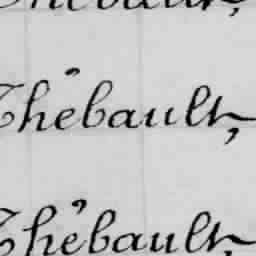 Thébault,
Thébault,
Thébault,